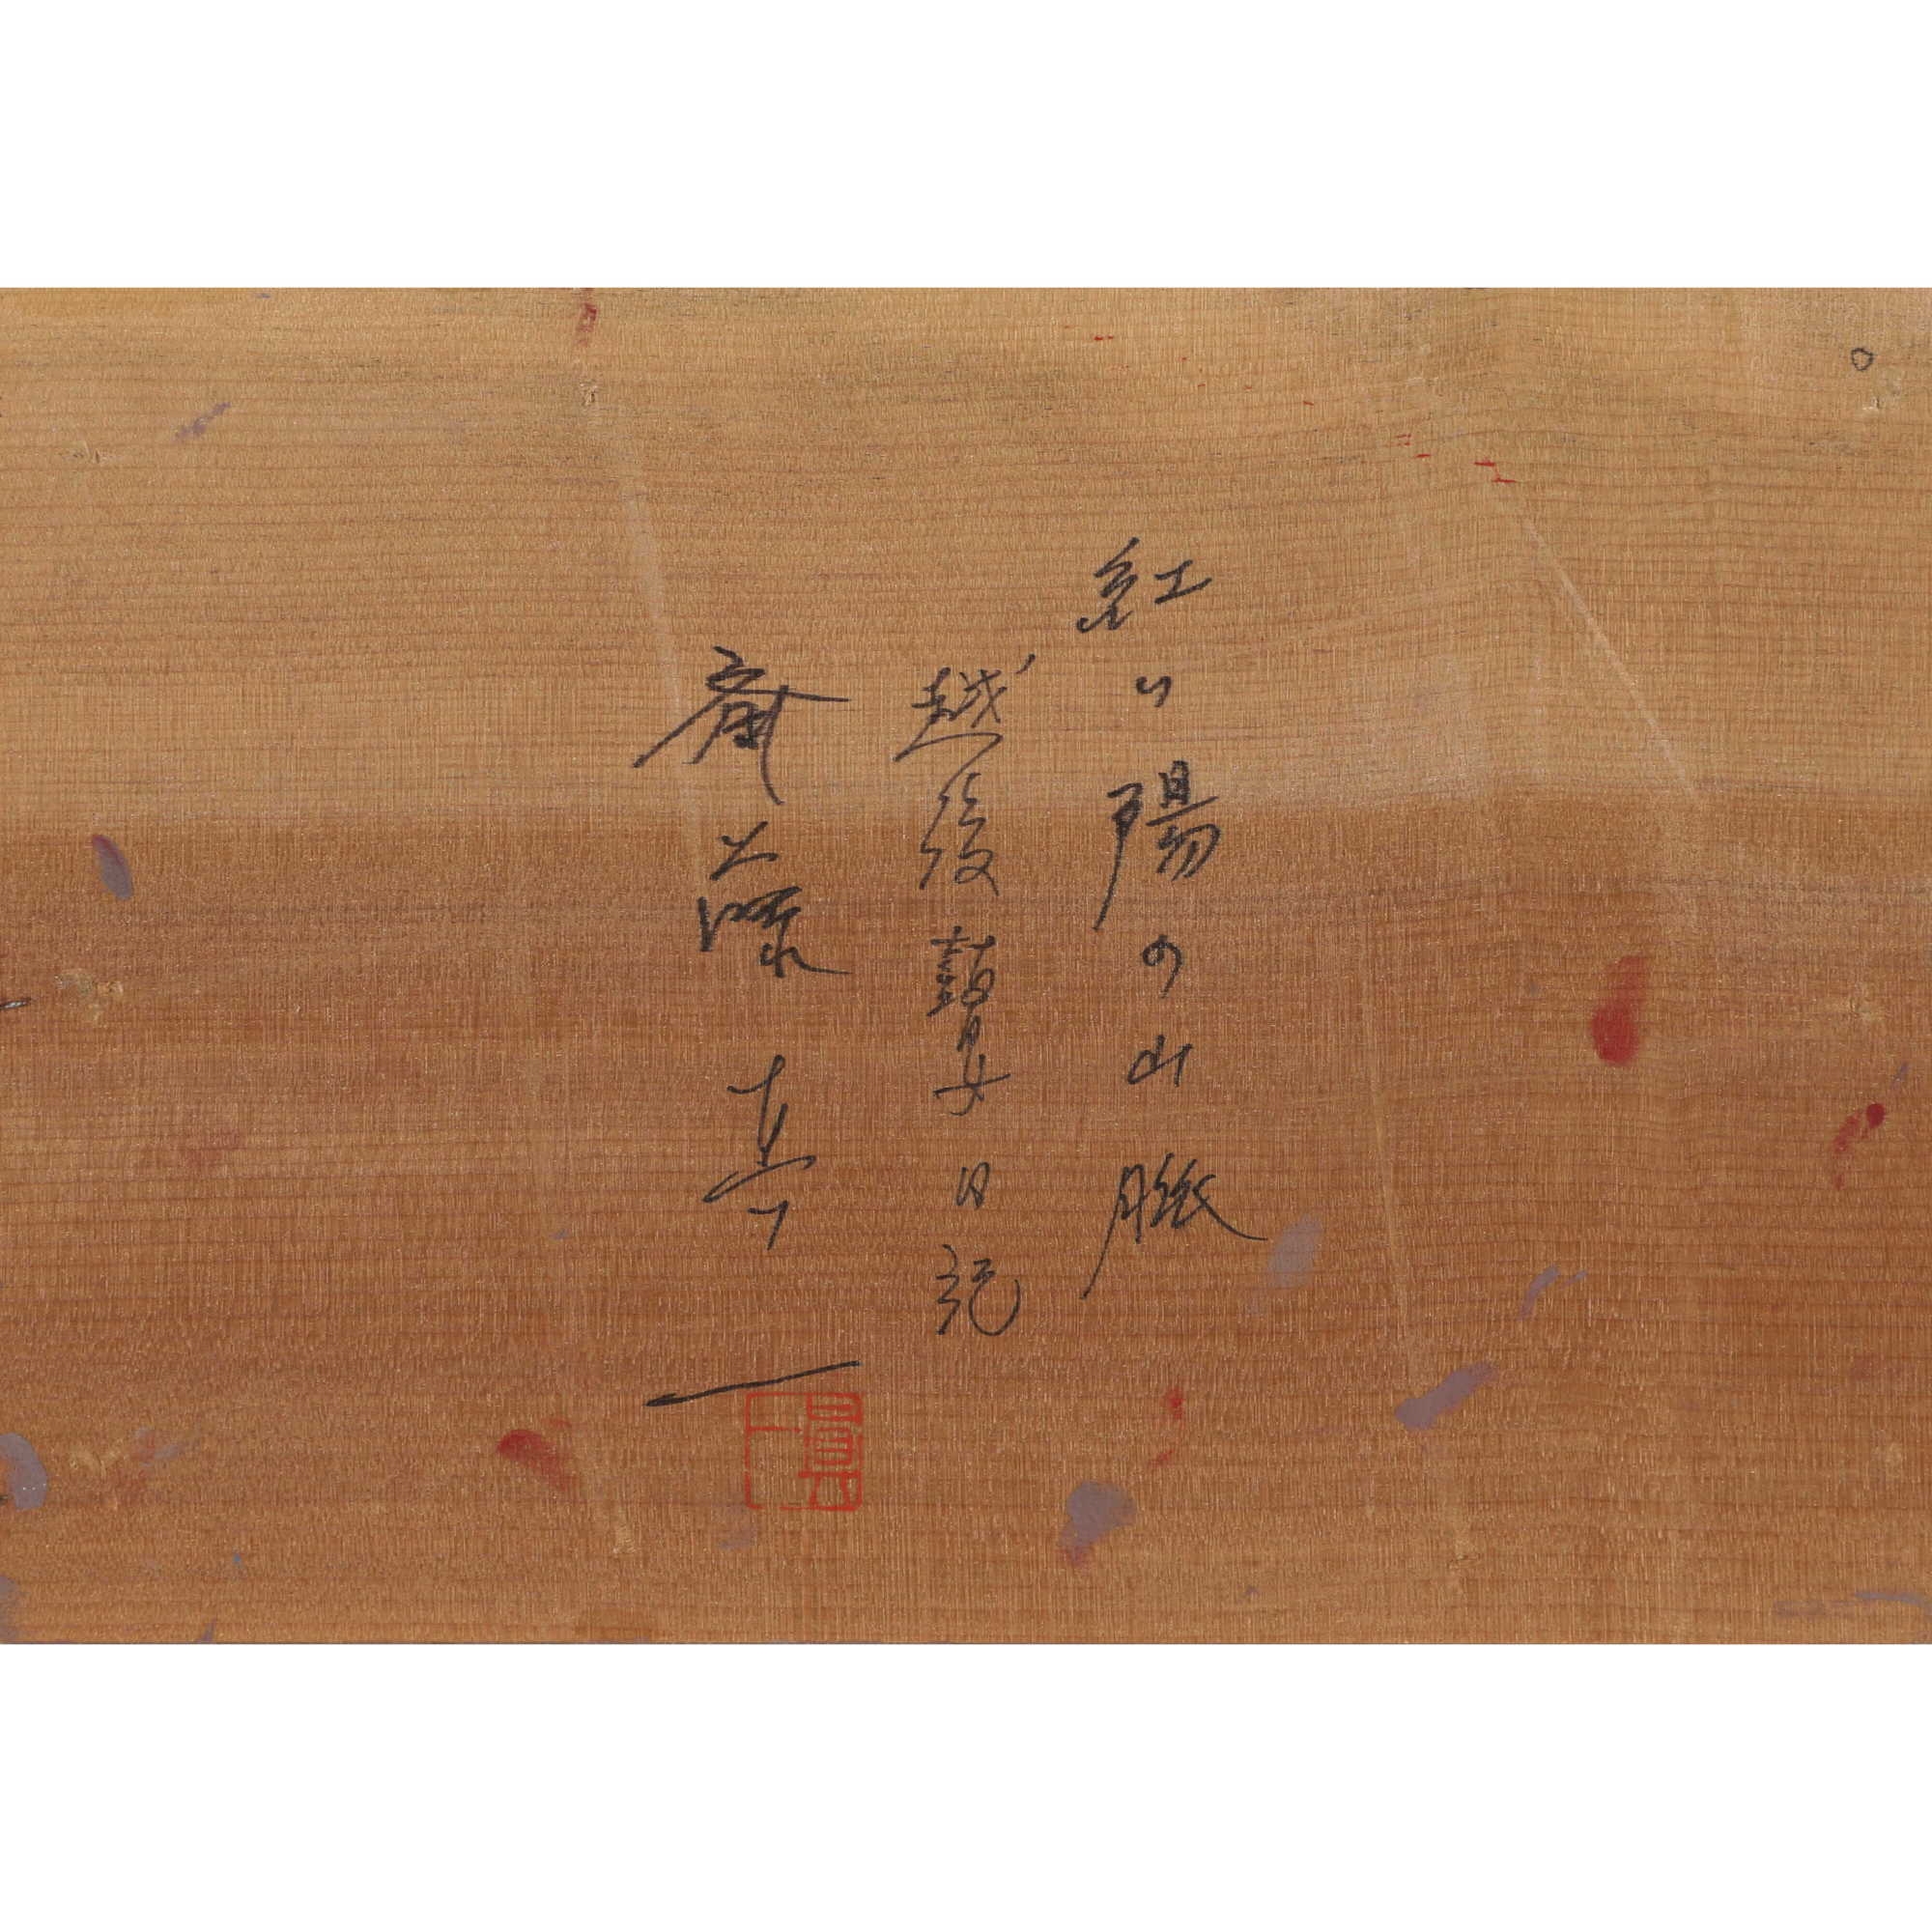 紅い陽の山脈
越後瞽女日記
斎藤真一
真一